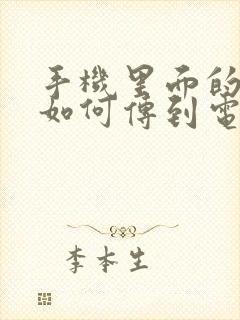 手機里面的
如何傳到電
李本生